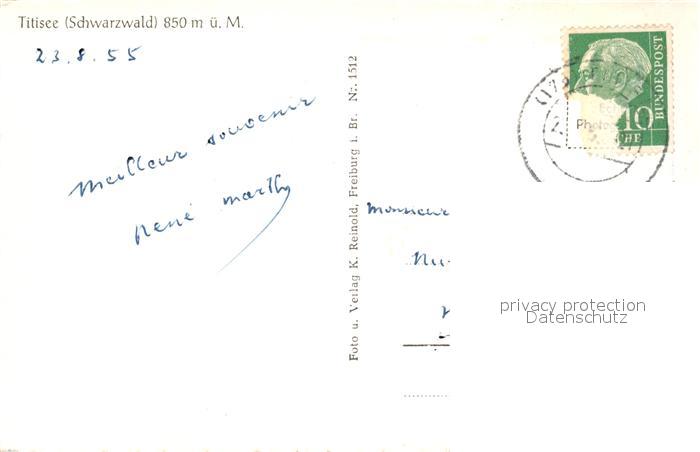 Titisee (Schwarzwald) 850 m ü. M.
23.8.55
Meilleur souvenir
René Marthy
Foto u. Verlag K. Reinold, Freiburg i. Br. Nr. 1512
Monsieur
BUNDESPOST
10
privacy protection
Datenschutz